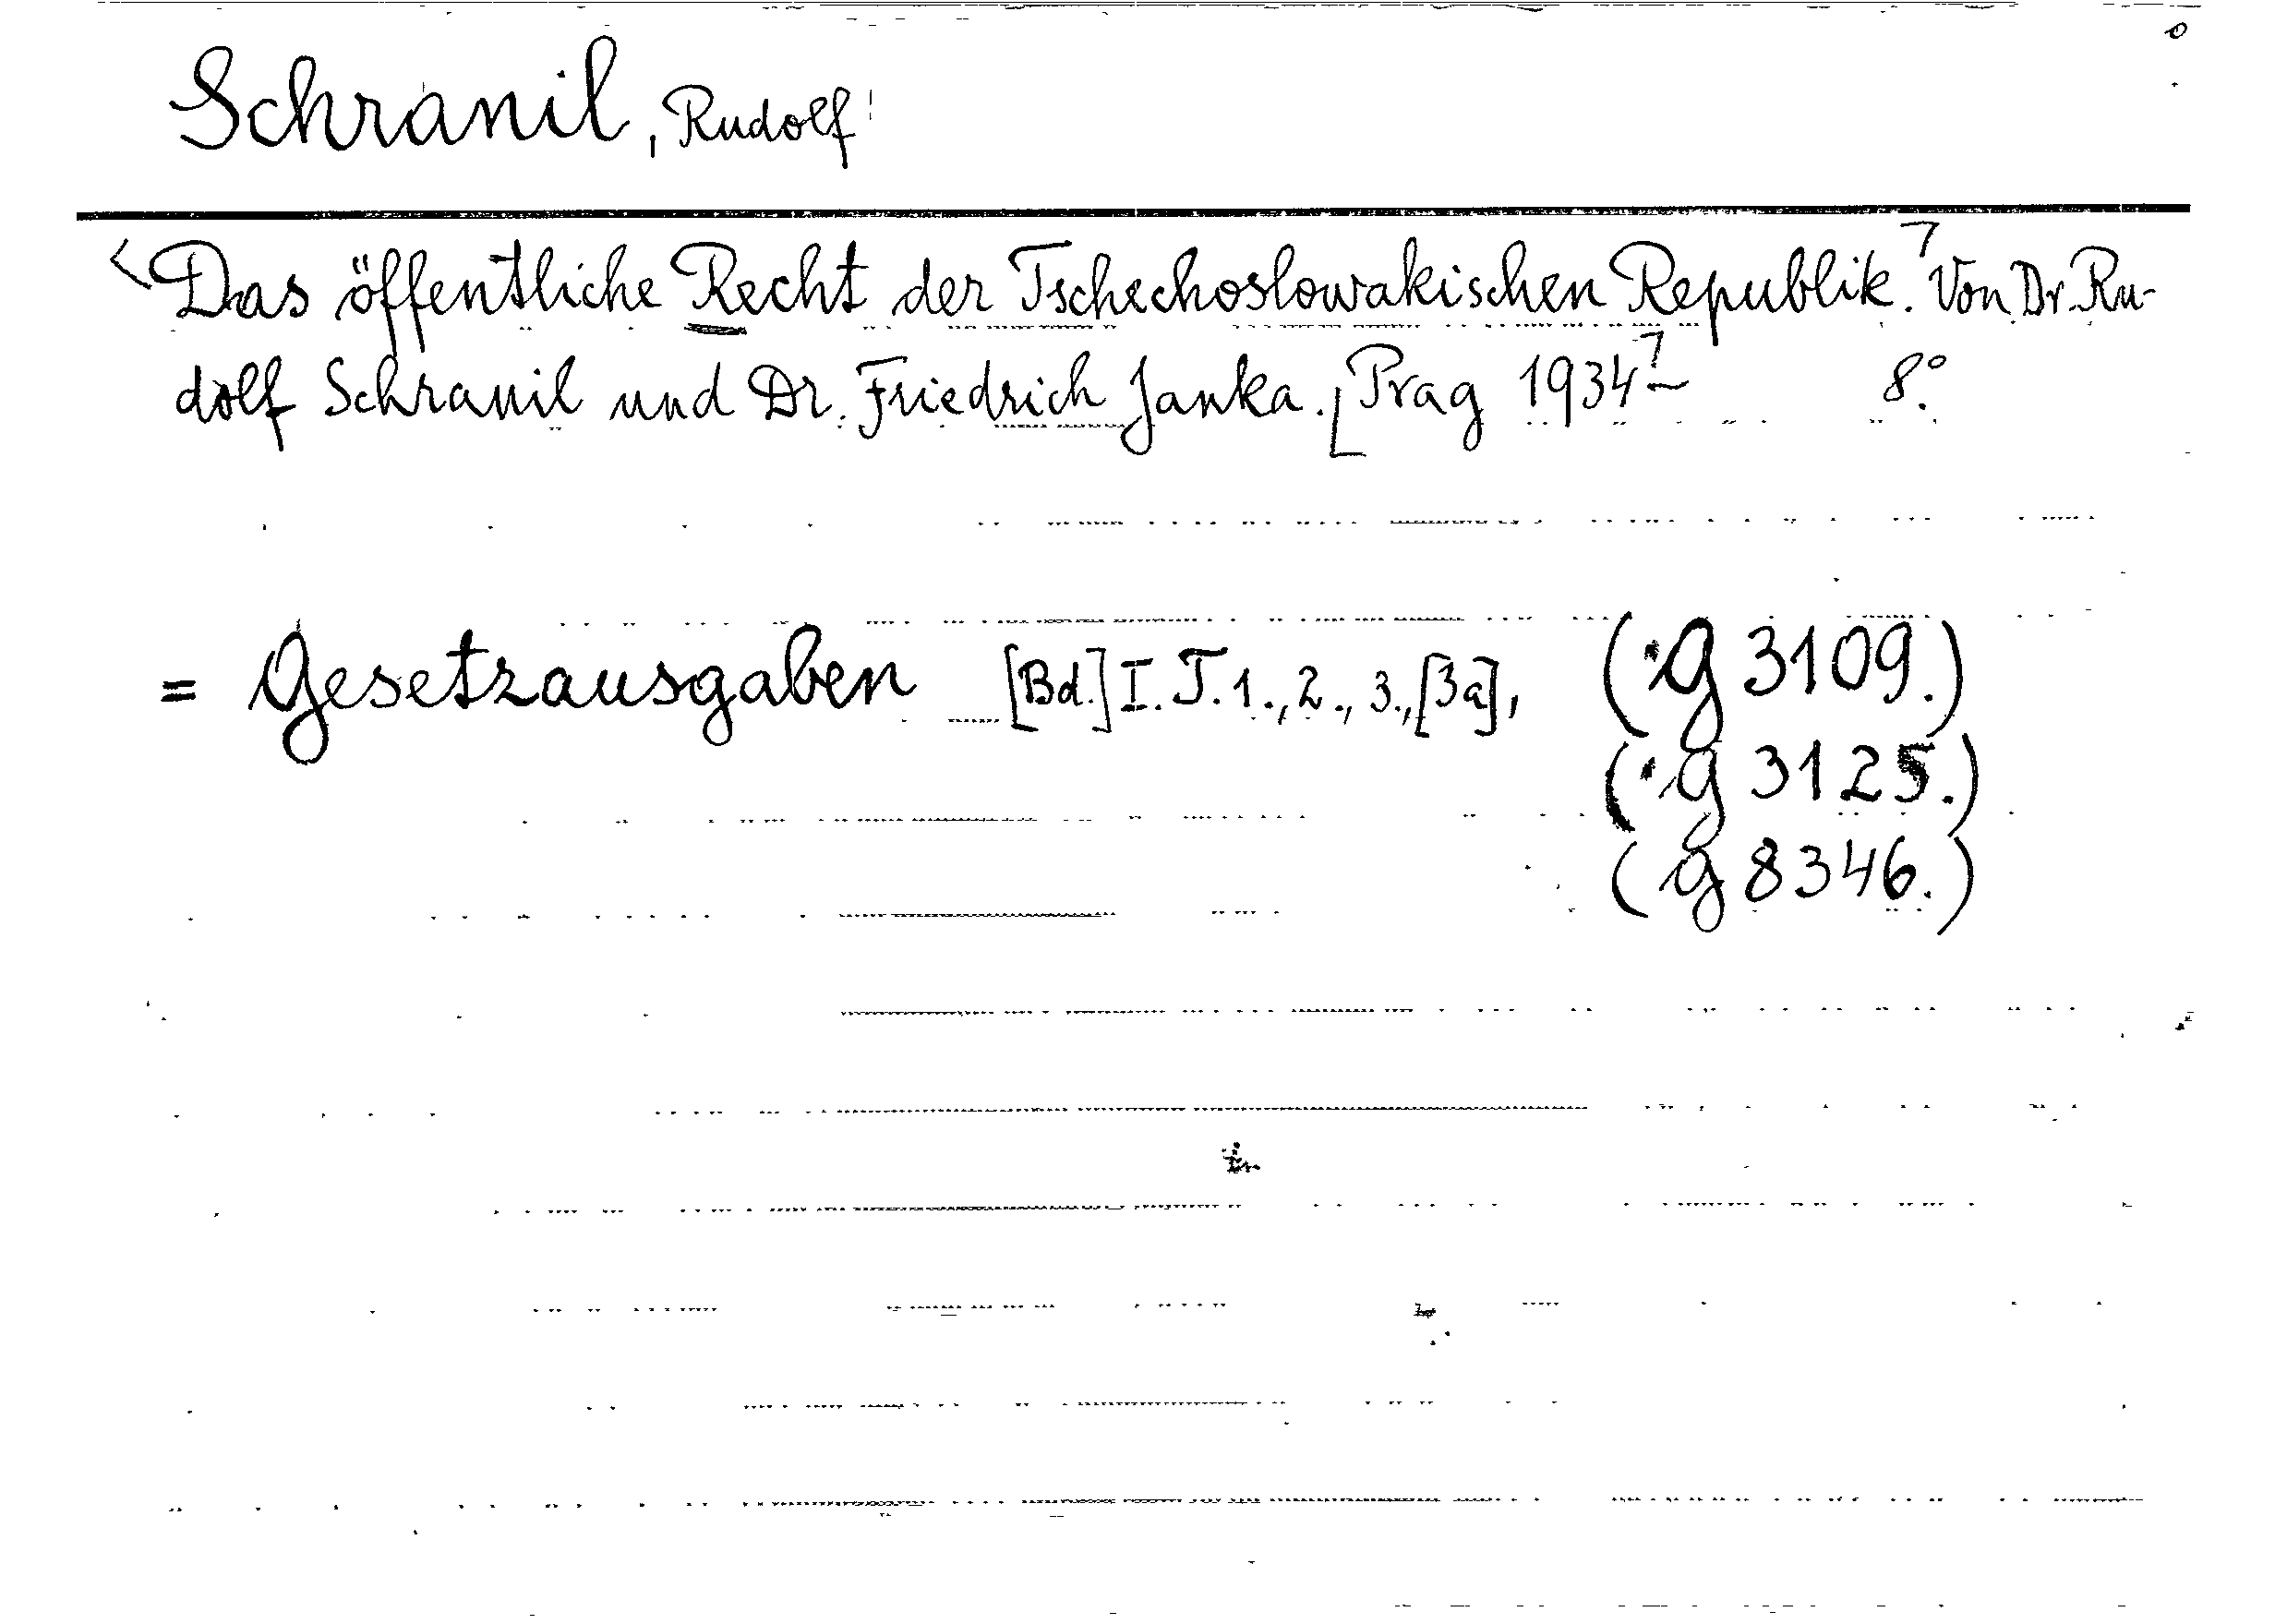 Schranil, Rudolf
Das öffentliche Recht der Tschechoslowakischen Republik. Von Dr. Ru-
dolf Schranil und Dr. Friedrich Janka. Prag 1934- 8°.
= Gesetzausgaben [Bd.] I. T. 1., 2., 3., [3a], (g 3109.)
(g 3125.)
(g 8346.)